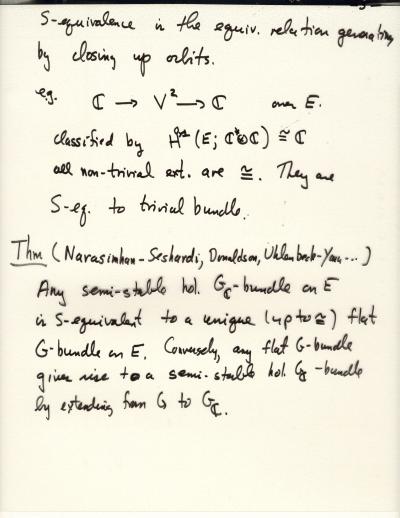 S-equivalence is the equiv. relation generating
by closing up orbits.
e.g. ℂ → V² → ℂ over E.
classified by H¹(E; ℂ*⊗ℂ) ≅ ℂ
all non-trivial ext. are ≅. They are
S-eq. to trivial bundle.
Thm (Narasimhan-Seshardi, Donaldson, Uhlenbeck-Yau...)
Any semi-stable hol. G_ℂ-bundle on E
is S-equivalent to a unique (up to ≅) flat
G-bundle on E. Conversely, any flat G-bundle
gives rise to a semi-stable hol. G_ℂ-bundle
by extending from G to G_ℂ.